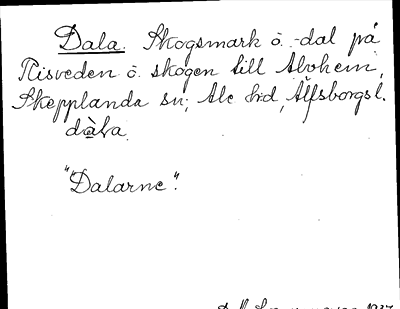 Dala. Skogsmark o. -dal på
Risveden o. skogen till Alvhem,
Skepplanda sn, Ale hd, Älfsborgs l.
dàla.
"Dalarne".